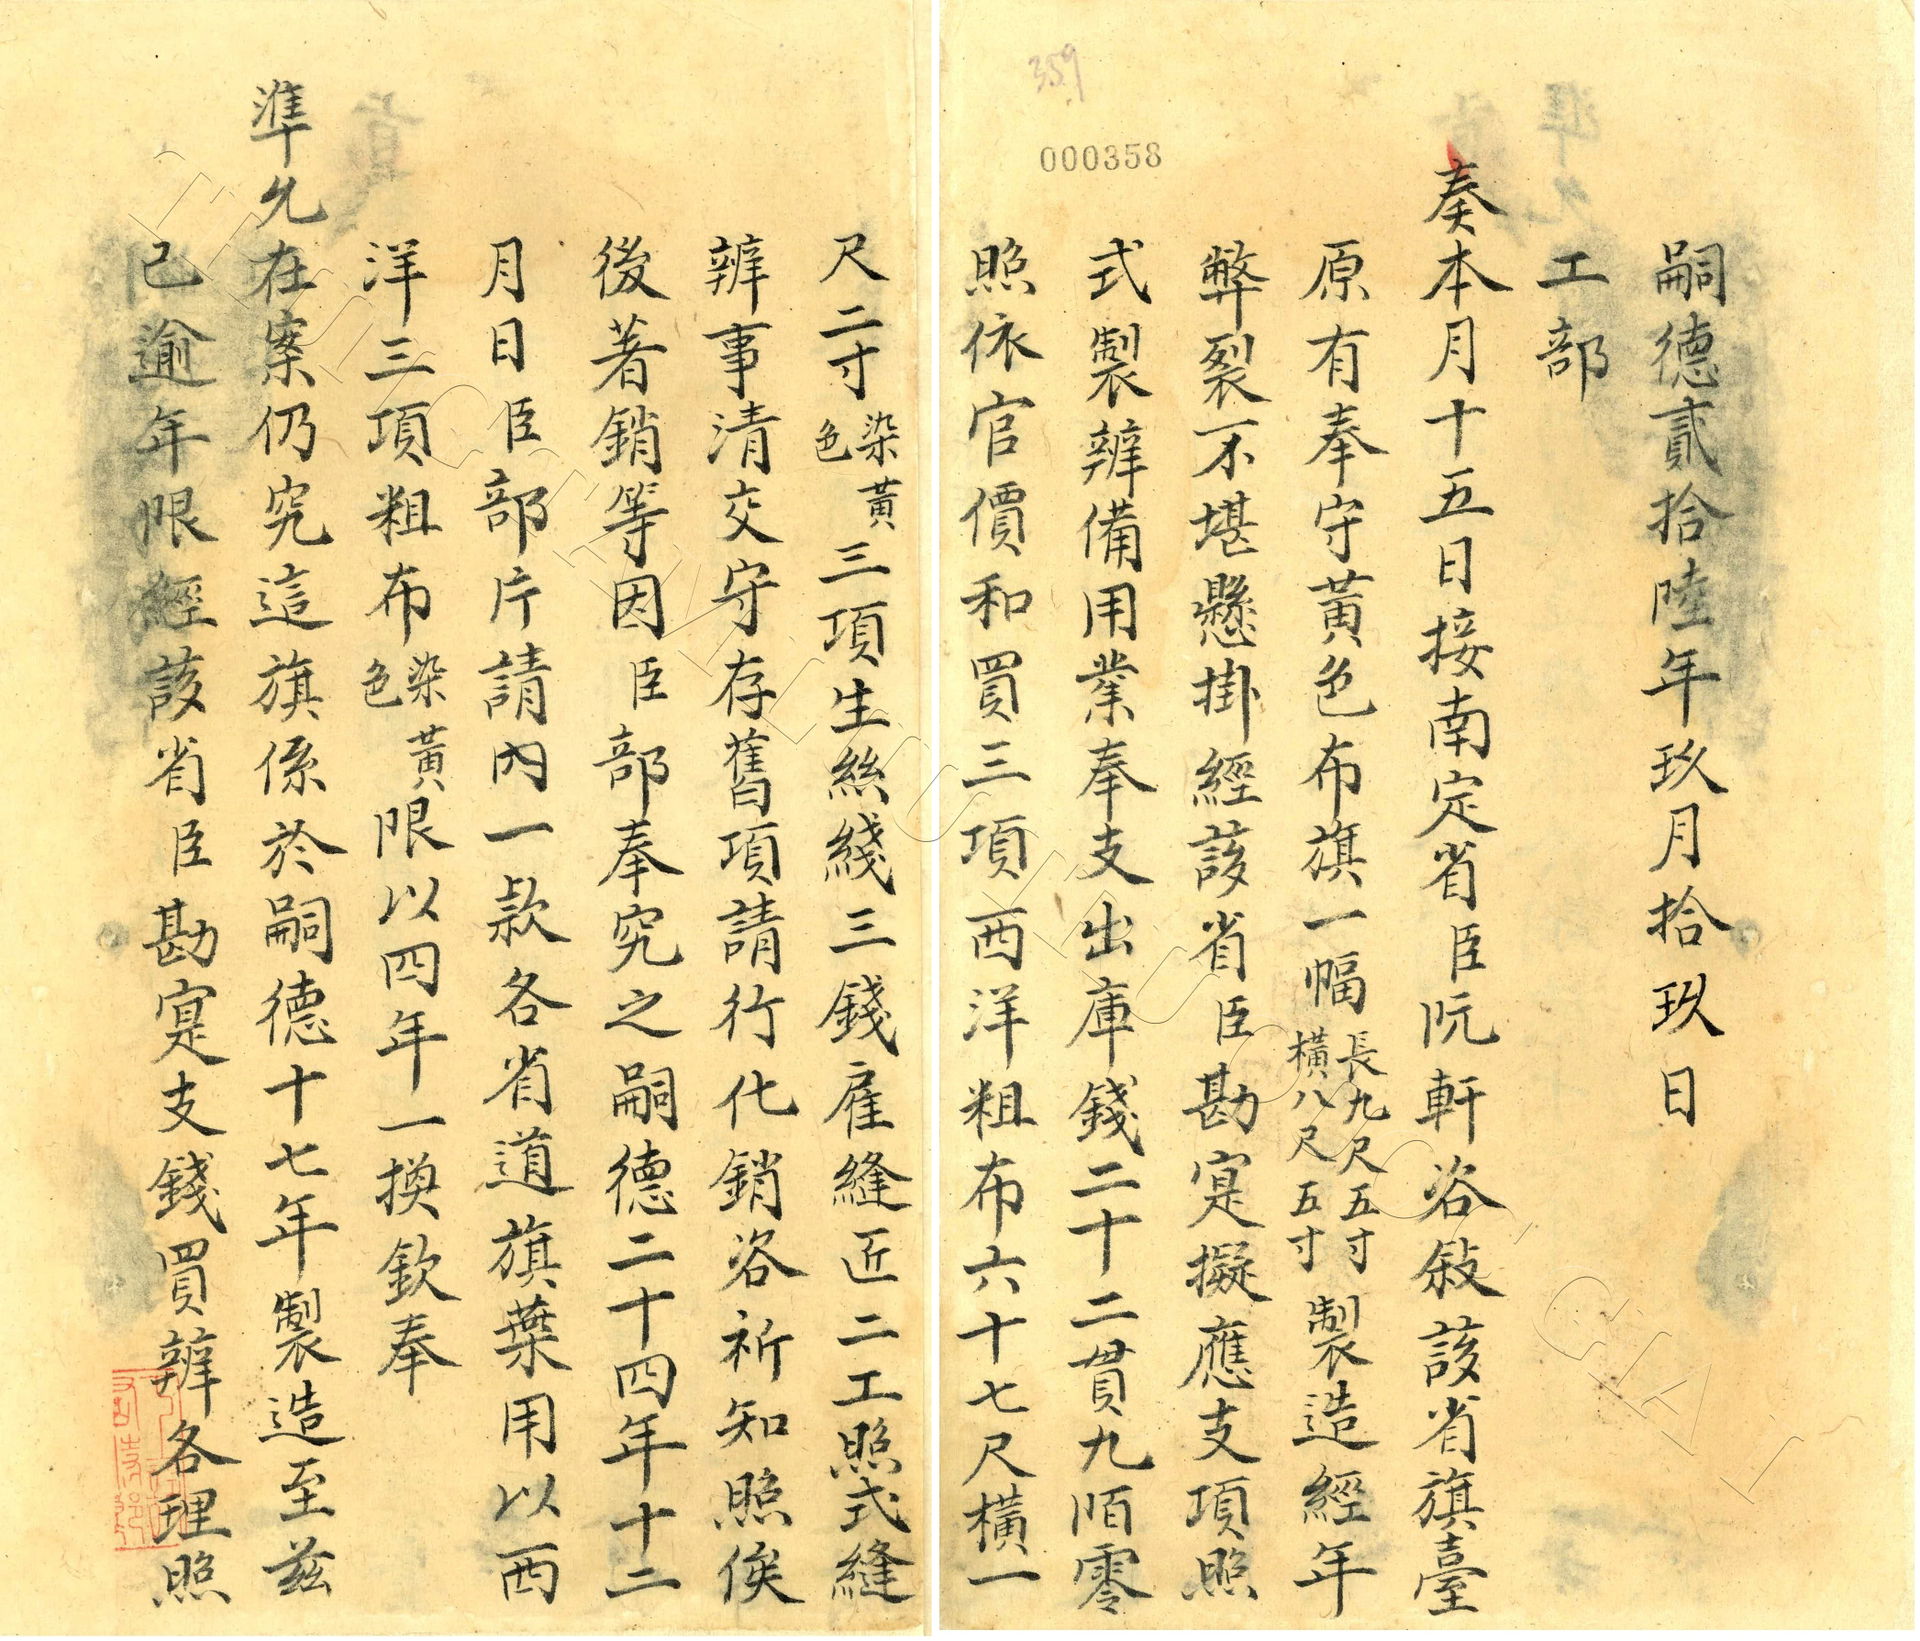 359
000358
嗣德貳拾陸年玖月拾玖日
工部
奏本月十五日接南定省臣阮軒咨敍該省旗臺
原有奉守黃色布旗一幅長九尺五寸橫八尺五寸製造經年
弊裂不堪懸掛經該省臣勘寔擬應支項照
式製辦備用業奉支出庫錢二十二貫九陌零
照依官價和買三項西洋粗布六十七尺橫一
尺二寸染黃色三項生絲綫三錢雇縫匠二工照式縫
辦事清交守存舊項請行化銷咨祈知照俟
後著銷等因臣部奉究之嗣德二十四年十二
月日臣部片請內一款各省道旗葉用以西
洋三項粗布染黃色限以四年一換欽奉
準允在案仍究這旗係於嗣德十七年製造至茲
已逾年限經該省臣勘寔支錢買辦各理照